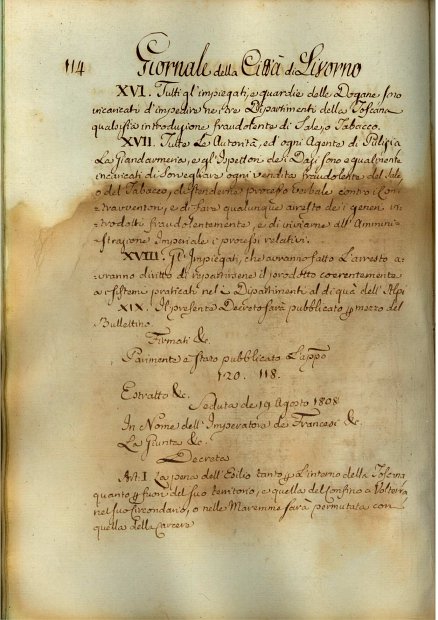 114 Giornale della Città di Livorno
XVI. Tutti gl'impiegati, e guardie delle Dogane sono
incaricati d'impedire ne i tre Dipartimenti della Toscana
qualsisia introduzione fraudolente di Sale, o Tabacco.
XVII. Tutte le Autorità, ed ogni Agente di Polizia
La Giandarmeria, e gl'Ispettori de i Dazi sono egualmente
incaricati di Sorvegliare ogni vendita fraudolente del Sale,
o del Tabacco, di stendente processo verbale contro i Con-
travventori, e di fare qualunque arresto dei generi in-
trodotti fraudolentemente, e di inviarne all'Ammini-
strazione Imperiale i processi relativi.
XVIII. Gl'Impiegati, che avranno fatto l'arresto a-
vranno diritto di repartirsene il prodotto coerentemente
a i sistemi praticati nel Dipartimenti al di quà dell'Alpi
XIX. Il presente Decreto sarà pubblicato p mezzo del
Bullettino.
Firmati &c.
Parimente è stato pubblicato L'appo
120. 118.
Estratto &c.
Seduta de 19 Agosto 1808
In Nome dell'Imperatore de Francesi &c.
La Giunta &c.
Decreta
Art. I La pena dell'Esilio tanto p l'interno della Toscana
quanto p fuori del suo territorio, e quella del Confino a Volterra
nel suo Circondario, o nelle Maremme sarà permutata con
quella della Carcere